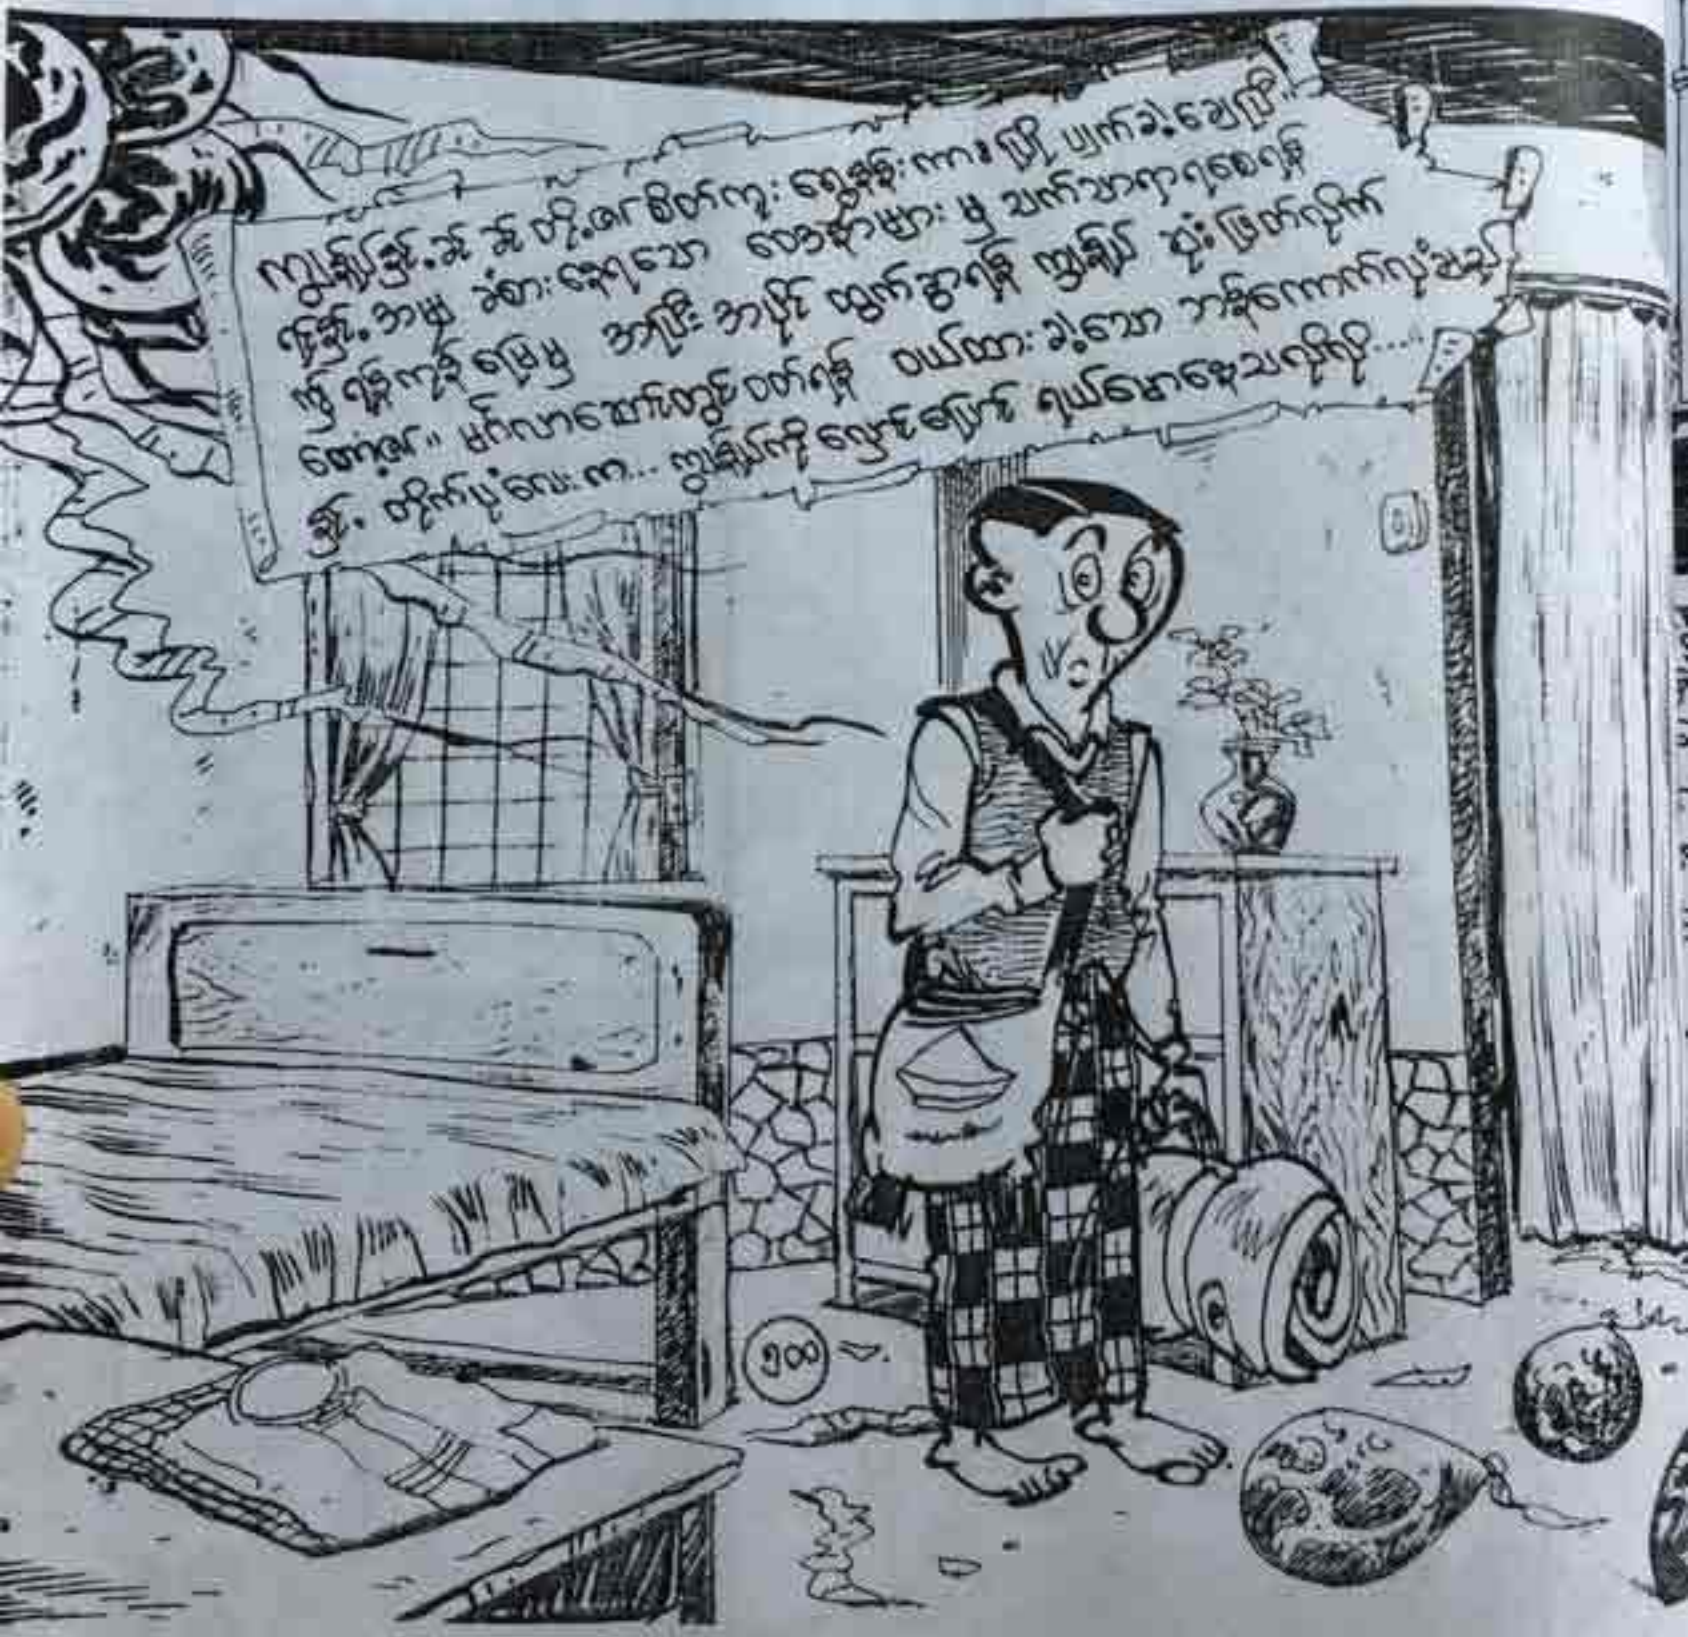 ကျွန်ုပ်နှင့် ခင် ခင် တို့၏ စိတ်ကူး ရွှေနန်းကားမို့ ပျက်ခဲ့ချေပြီ။
ရင်နှင့်အမျှ ခံစားနေရသော ဝေဒနာများ မှ သက်သာရာရစေရန်
ဤ ရန်ကုန်မြေမှ အပြီးအပိုင် ထွက်ခွာရန် ကျွန်ုပ် ဆုံးဖြတ်လိုက်
တော့၏။ မင်္ဂလာဆောင်တွင် ဝတ်ရန် ဝယ်ထားခဲ့သော ဘန်ကောက်လုံချည်
နှင့် တိုက်ပုံလေးက... ကျွန်ုပ်ကို လှောင်ပြောင် ရယ်မောနေသလိုလို....
၅၀၀